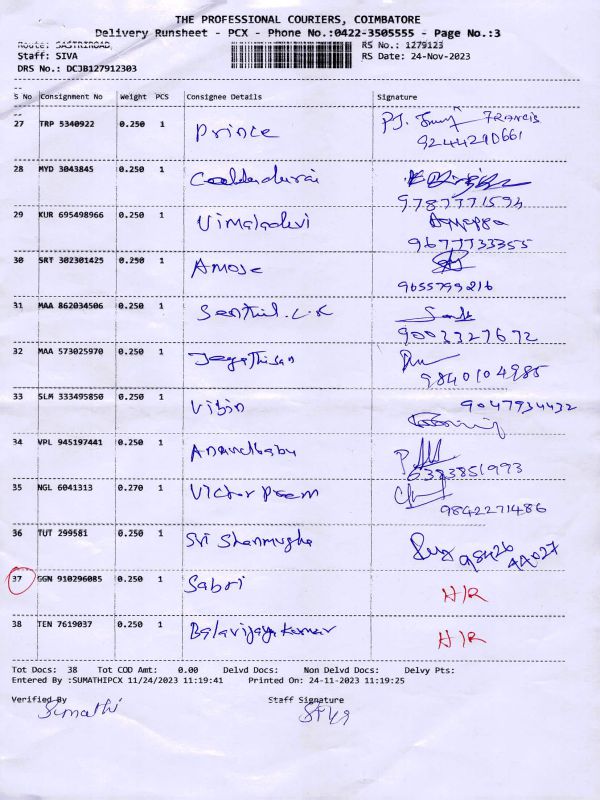 THE PROFESSIONAL COURIERS, COIMBATORE
Delivery Runsheet - PCX - Phone No.:0422-3505555 - Page No.:3
Route: SASTRIROAD,
RS No.: 1279123
Staff: SIVA
RS Date: 24-Nov-2023
DRS No.: DCJB127912303
S No Consignment No Weight PCS Consignee Details Signature
27 TRP 5340922 0.250 1 Prince PJ. Francis
9244290661
28 MYD 3043845 0.250 1
9787771593
29 KUR 695498966 0.250 1 Vimaladevi
9677733355
30 SRT 302301425 0.250 1 Amose
9655799216
31 MAA 862034506 0.250 1 Senthil.C.K
9003327672
32 MAA 573025970 0.250 1 Jegathisan
9840104985
33 SLM 333495850 0.250 1 Vibin 9047934432
34 VPL 945197441 0.250 1 Anandbabu
6383851993
35 NGL 6041313 0.270 1 Victor Prem
9842271486
36 TUT 299581 0.250 1 Sri Shanmugha
98426
44027
37 GGN 910296085 0.250 1 Sabri H/R
38 TEN 7619037 0.250 1 Balavijaya Kumar H/R
Tot Docs: 38 Tot COD Amt: 0.00 Delvd Docs: Non Delvd Docs: Delvy Pts:
Entered By :SUMATHIPCX 11/24/2023 11:19:41 Printed On: 24-11-2023 11:19:25
Verified By Staff Signature
Sumathi Siva